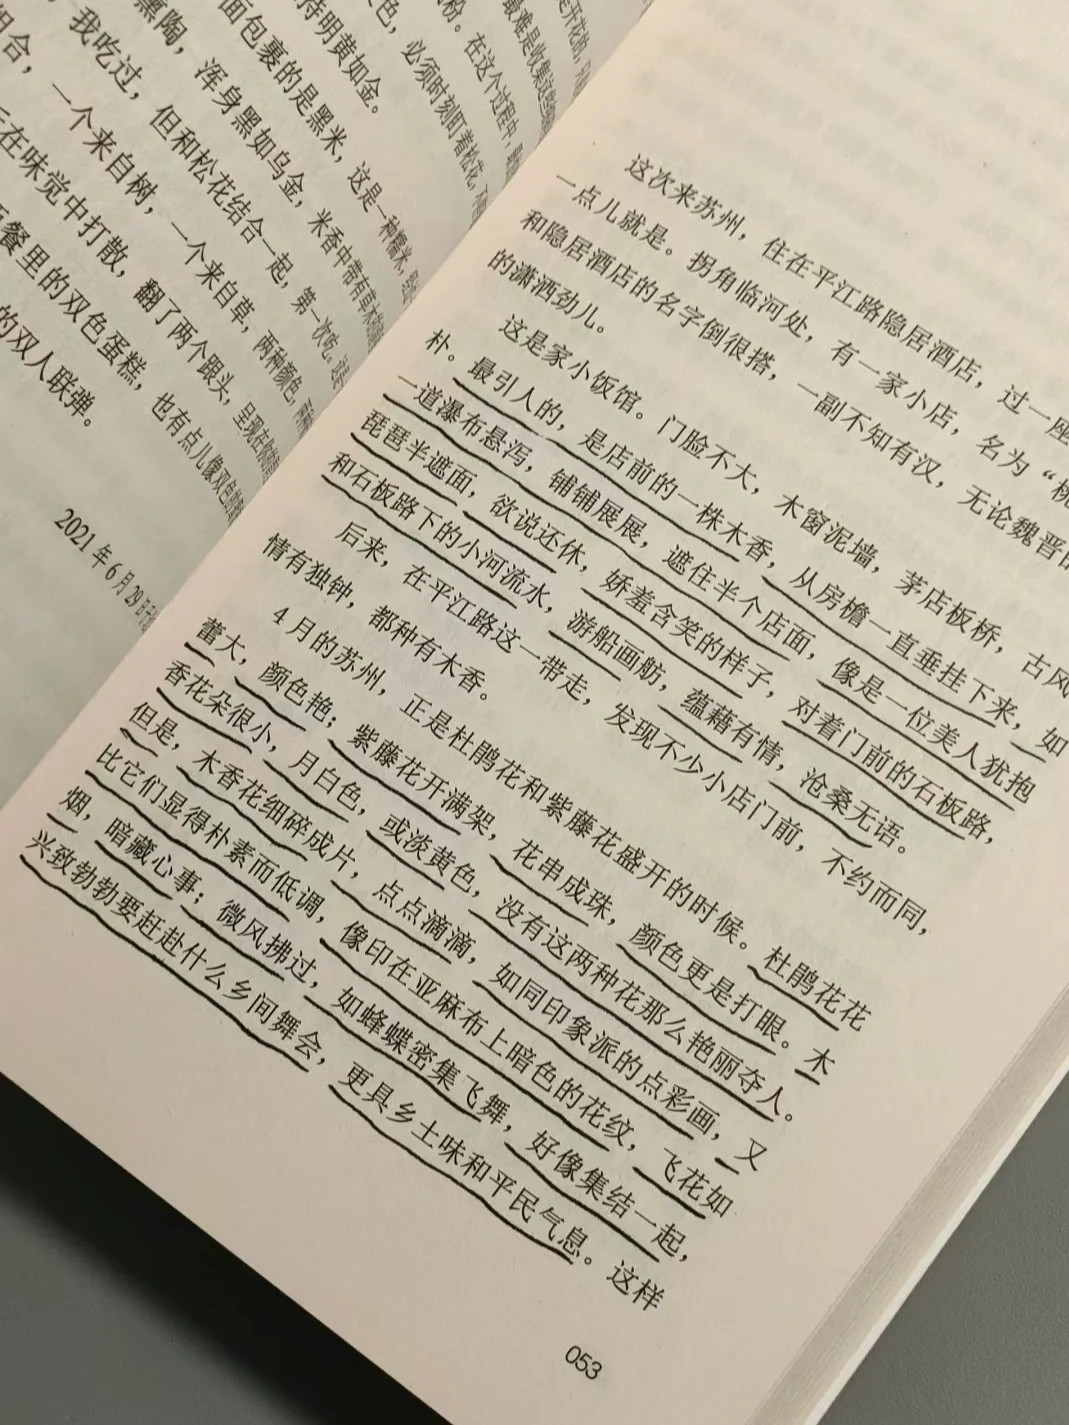 走开花粉，
最难是收集这些
粉。在这个过程中，
色，必须时刻盯着松花，
持明黄如金。
面包裹的是黑米，这是一种糯米，
熏陶，浑身黑如乌金，米香中带有草木
我吃过，但和松花结合一起，第一次吃。
组合，一个来自树，一个来自草，两种颜色，
在味觉中打散，翻了两个跟头，呈现在
餐里的双色蛋糕，也有点儿像双色
的双人联弹。
2021年6月29日于
这次来苏州，住在平江路隐居酒店，过一座
一点儿就是。拐角临河处，有一家小店，名为“桃
和隐居酒店的名字倒很搭，一副不知有汉，无论魏晋
的潇洒劲儿。
这是家小饭馆。门脸不大，木窗泥墙，茅店板桥，古风
朴。最引人的，是店前的一株木香，从房檐一直垂挂下来，如
一道瀑布悬泻，铺铺展展，遮住半个店面，像是一位美人犹抱
琵琶半遮面，欲说还休，娇羞含笑的样子，对着门前的石板路，
和石板路下的小河流水，游船画舫，蕴藉有情，沧桑无语。
后来，在平江路这一带走，发现不少小店门前，不约而同，
情有独钟，都种有木香。
4月的苏州，正是杜鹃花和紫藤花盛开的时候。杜鹃花花
蕾大，颜色艳；紫藤花开满架，花串成珠，颜色更是打眼。木
香花朵很小，月白色，或淡黄色，没有这两种花那么艳丽夺人。
但是，木香花细碎成片，点点滴滴，如同印象派的点彩画，又
比它们显得朴素而低调，像印在亚麻布上暗色的花纹，飞花如
烟，暗藏心事；微风拂过，如蜂蝶密集飞舞，好像集结一起，
兴致勃勃要赶赴什么乡间舞会，更具乡土味和平民气息。这样
053